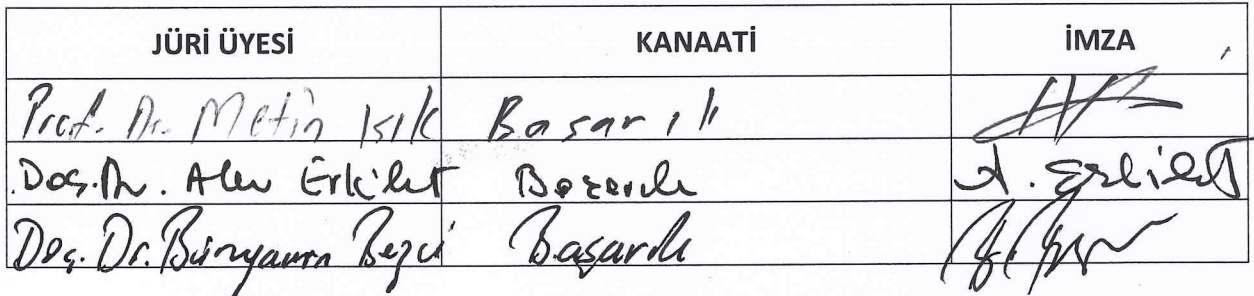 JÜRİ ÜYESİ KANAATİ İMZA
Prof. Dr. Metin Işık Başarılı
Doç. Dr. Alev Erkilet Başarılı A. Erkilet
Doç. Dr. Bünyamin Bezci Başarılı